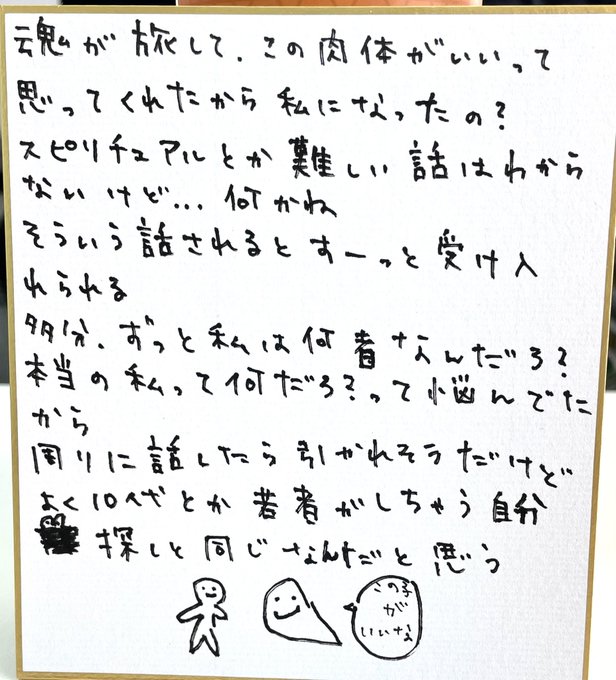 魂が旅して、この肉体がいいって
思ってくれたから私になったの?
スピリチュアルとか難しい話はわから
ないけど...何かね
そういう話されるとすーっと受け入
れられる
多分、ずっと私は何者なんだろ?
本当の私って何だろ?って悩んでた
から
周りに話したら引かれそうだけど
よく10代とか若者がしちゃう自分
探しと同じなんだと思う
この子
が
いいな